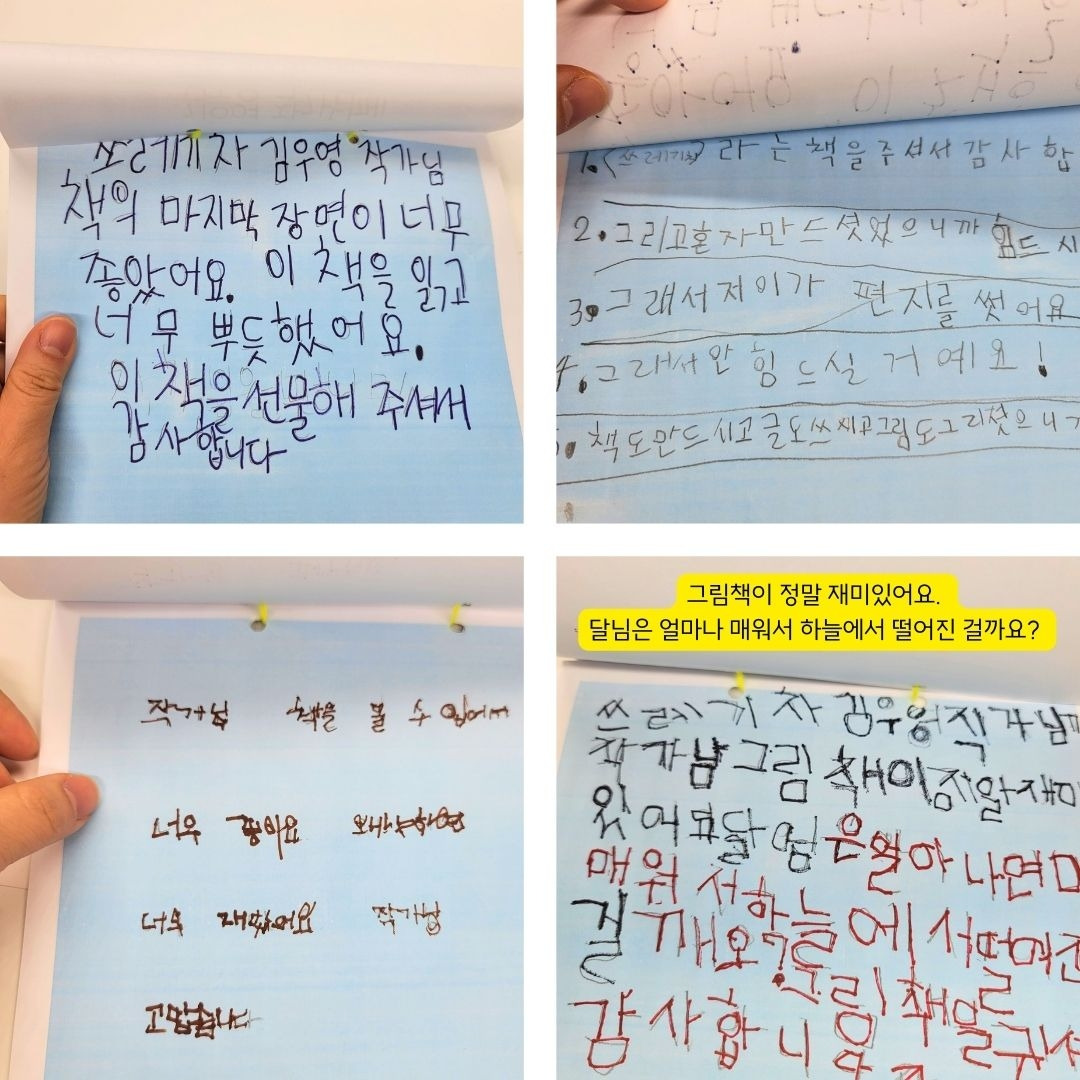 쓰레기차 김우영 작가님
책의 마지막 장면이 너무
좋았어요. 이 책을 읽고
너무 뿌듯했어요.
이 책을 선물해 주셔서
감사합니다
1. (쓰레기차) 라는 책을 주셔서 감사합
2. 그리고혼자만드셧었으니까 힘드시
3. 그래서저이가 편지를 썻어요
4. 그래서안힘드실거예요!
책도만드시고글도쓰씨고그림도그리셧으니
작가님 책을 볼 수 있어서
너무
너무 재밌어요 작가님
고맙습니다
그림책이 정말 재미있어요.
달님은 얼마나 매워서 하늘에서 떨어진 걸까요?
쓰레기차 김우영작가님
작가님그림책이 재미
있어요달님은얼마나
매워서하늘에서떨어진
걸까요?그림책을
감사합니다